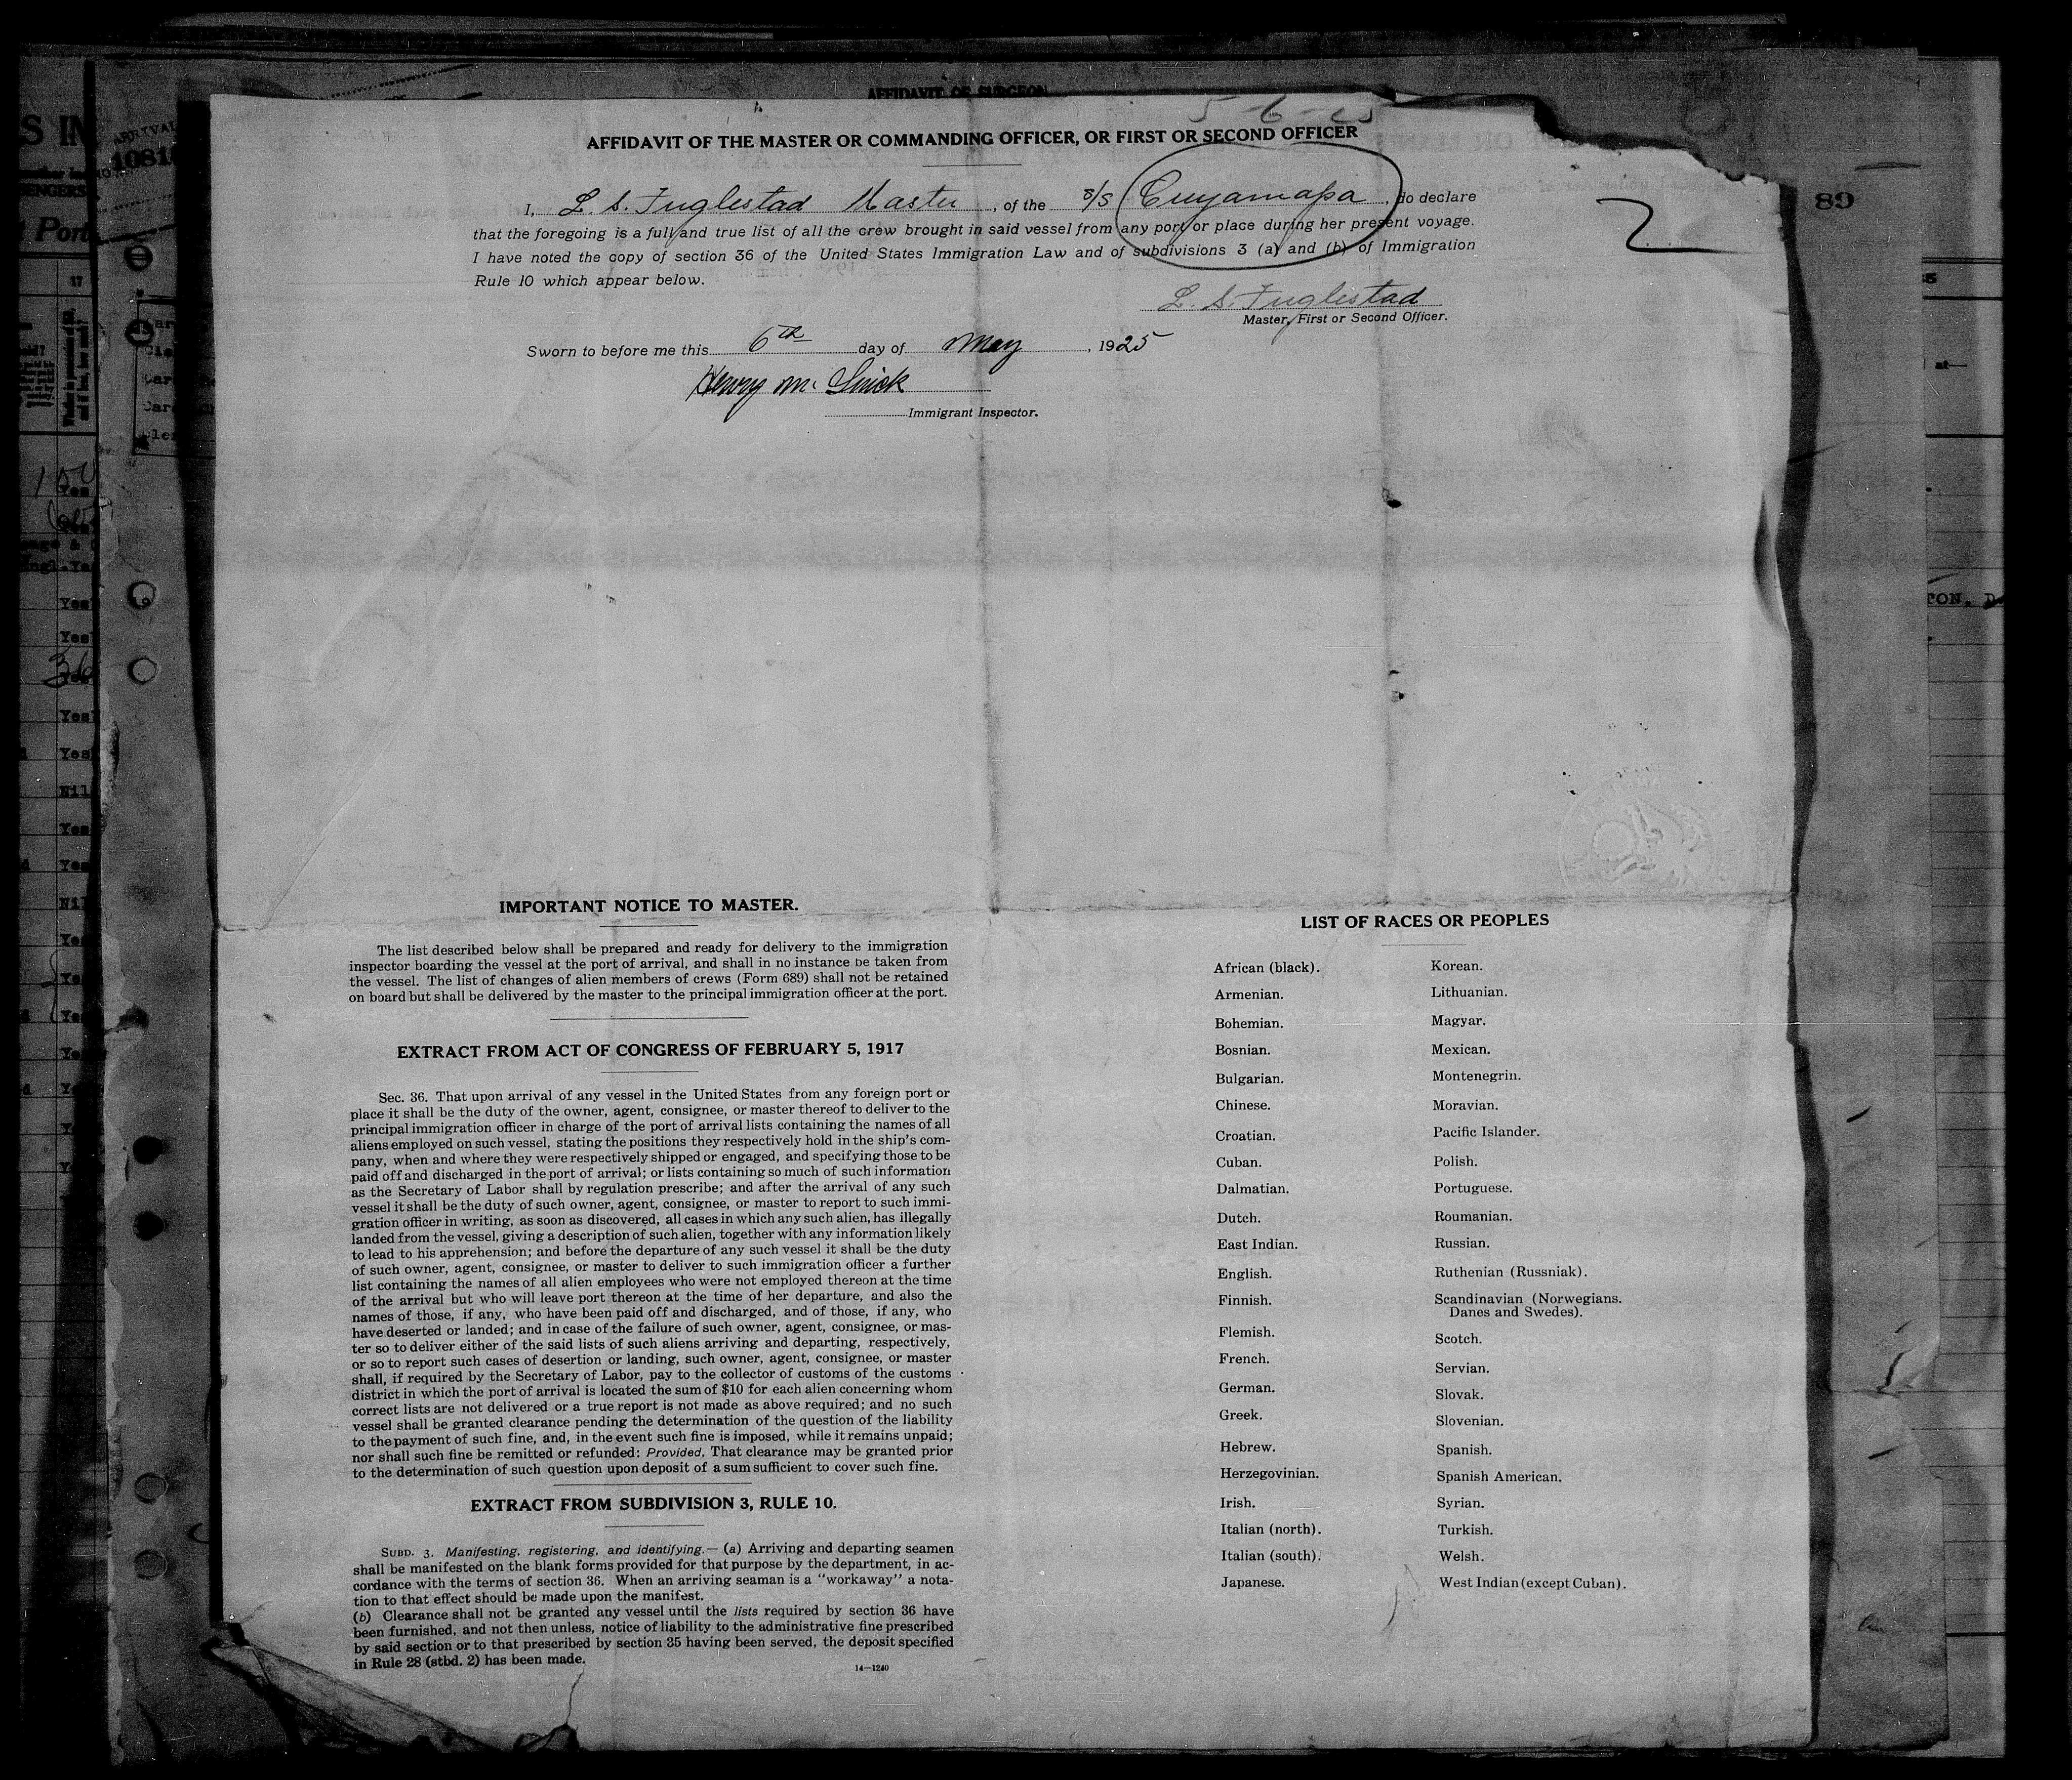 AFFIDAVIT OF SURGEON
5-6-25
AFFIDAVIT OF THE MASTER OR COMMANDING OFFICER, OR FIRST OR SECOND OFFICER
I, L. S. Inglestad Master, of the S/S Cuyamapa, do declare
that the foregoing is a full and true list of all the crew brought in said vessel from any port or place during her present voyage.
I have noted the copy of section 36 of the United States Immigration Law and of subdivisions 3 (a) and (b) of Immigration
Rule 10 which appear below.
L. S. Inglestad
Master, First or Second Officer.
Sworn to before me this 6th day of May, 1925
Henry M.
Immigrant Inspector.
2
89
IMPORTANT NOTICE TO MASTER.
The list described below shall be prepared and ready for delivery to the immigration
inspector boarding the vessel at the port of arrival, and shall in no instance be taken from
the vessel. The list of changes of alien members of crews (Form 689) shall not be retained
on board but shall be delivered by the master to the principal immigration officer at the port.
EXTRACT FROM ACT OF CONGRESS OF FEBRUARY 5, 1917
Sec. 36. That upon arrival of any vessel in the United States from any foreign port or
place it shall be the duty of the owner, agent, consignee, or master thereof to deliver to the
principal immigration officer in charge of the port of arrival lists containing the names of all
aliens employed on such vessel, stating the positions they respectively hold in the ship's com-
pany, when and where they were respectively shipped or engaged, and specifying those to be
paid off and discharged in the port of arrival; or lists containing so much of such information
as the Secretary of Labor shall by regulation prescribe; and after the arrival of any such
vessel it shall be the duty of such owner, agent, consignee, or master to report to such immi-
gration officer in writing, as soon as discovered, all cases in which any such alien, has illegally
landed from the vessel, giving a description of such alien, together with any information likely
to lead to his apprehension; and before the departure of any such vessel it shall be the duty
of such owner, agent, consignee, or master to deliver to such immigration officer a further
list containing the names of all alien employees who were not employed thereon at the time
of the arrival but who will leave port thereon at the time of her departure, and also the
names of those, if any, who have been paid off and discharged, and of those, if any, who
have deserted or landed; and in case of the failure of such owner, agent, consignee, or mas-
ter so to deliver either of the said lists of such aliens arriving and departing, respectively,
or so to report such cases of desertion or landing, such owner, agent, consignee, or master
shall, if required by the Secretary of Labor, pay to the collector of customs of the customs
district in which the port of arrival is located the sum of $10 for each alien concerning whom
correct lists are not delivered or a true report is not made as above required; and no such
vessel shall be granted clearance pending the determination of the question of the liability
to the payment of such fine, and, in the event such fine is imposed, while it remains unpaid;
nor shall such fine be remitted or refunded: Provided, That clearance may be granted prior
to the determination of such question upon deposit of a sum sufficient to cover such fine.
EXTRACT FROM SUBDIVISION 3, RULE 10.
SUBD. 3. Manifesting, registering, and identifying.—(a) Arriving and departing seamen
shall be manifested on the blank forms provided for that purpose by the department, in ac-
cordance with the terms of section 36. When an arriving seaman is a "workaway" a nota-
tion to that effect should be made upon the manifest.
(b) Clearance shall not be granted any vessel until the lists required by section 36 have
been furnished, and not then unless, notice of liability to the administrative fine prescribed
by said section or to that prescribed by section 35 having been served, the deposit specified
in Rule 28 (stbd. 2) has been made.
14—1240
LIST OF RACES OR PEOPLES
African (black).
Armenian.
Bohemian.
Bosnian.
Bulgarian.
Chinese.
Croatian.
Cuban.
Dalmatian.
Dutch.
East Indian.
English.
Finnish.
Flemish.
French.
German.
Greek.
Hebrew.
Herzegovinian.
Irish.
Italian (north).
Italian (south).
Japanese.
Korean.
Lithuanian.
Magyar.
Mexican.
Montenegrin.
Moravian.
Pacific Islander.
Polish.
Portuguese.
Roumanian.
Russian.
Ruthenian (Russniak).
Scandinavian (Norwegians.
Danes and Swedes).
Scotch.
Servian.
Slovak.
Slovenian.
Spanish.
Spanish American.
Syrian.
Turkish.
Welsh.
West Indian (except Cuban).